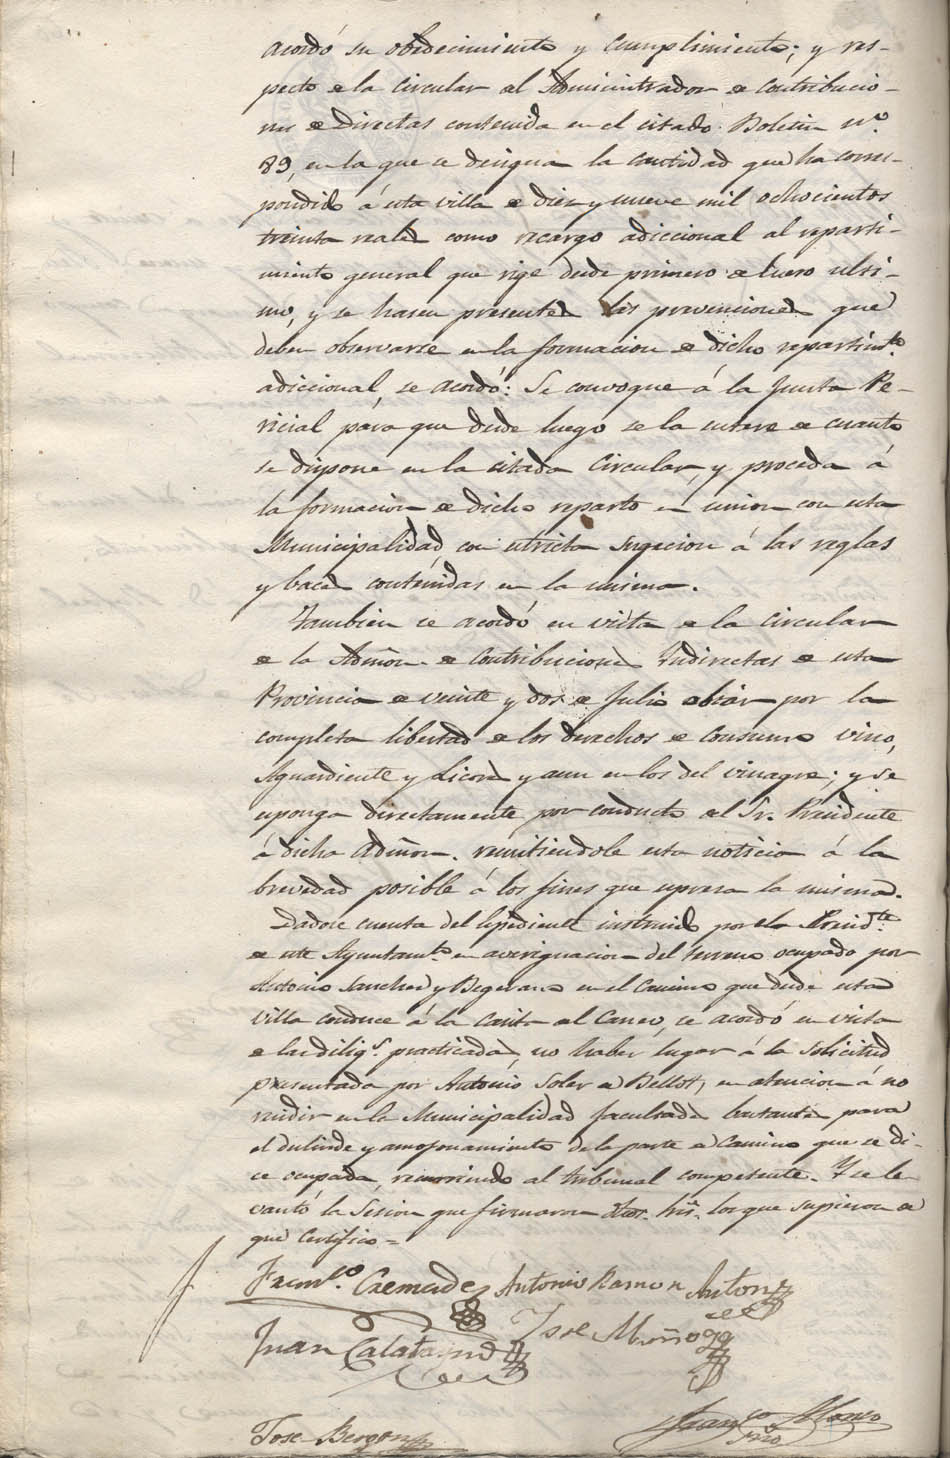 acordó su obedecimiento y cumplimiento; y res-
pecto a la circular del Administrador de contribucio-
nes Directas contenida en el citado Boletin nº.
89, en la que se designa la cantidad que ha corres-
pondido á esta villa de diez y nueve mil ochocientos
treinta reales como recargo adiccional al reparti-
miento general que rige desde primero de Enero ulti-
mo, y se hacen presentes las prevenciones que
deben observarse en la formacion de dicho repartimto.
adiccional, se acordó: Se convoque á la Junta Pe-
ricial para que desde luego se la entere de cuanto
se dispone en la citada Circular, y proceda á
la formacion de dicho reparto en union con esta
Municipalidad, con estricta sugecion á las reglas
y baces contenidas en la misma.
Tambien se acordó en vista de la Circular
de la Admon. de Contribuciones Yndirectas de esta
Provincia de veinte y dos de Julio por la
completa libertad de los derechos de Consumo vino,
Aguardiente y Licores y aun en los del vinagre; y se
esponga directamente por conducto del Sr. Presidente
á dicha Admon. remitiendole esta noticia á la
brevedad posible á los fines que espresa la misma.
Dadose cuenta del Espediente instruido por el Presidte.
de este Ayuntamto. en averiguacion del terreno ocupado por
Antonio Sanchez y Begerano en el Camino que desde esta
villa conduce á la Casita del Caneo, se acordó en vista
de las diligs. practicadas, no haber lugar á la solicitud
presentada por Antonio Soler de Bellot, en atencion á no
recidir en la Municipalidad facultades bastantes para
el deslinde y amojonamiento de la parte de Camino que se di-
ce ocupada, recurriendo al tribunal competente. Y se le-
vantó la Sesion que firmaron los que supieron de
que Certifico =
Francco. Cremades Antonio Ramon Anton
Juan Calatayud Jose Muñoz
Jose Bergon
Franco Alonso
Srio